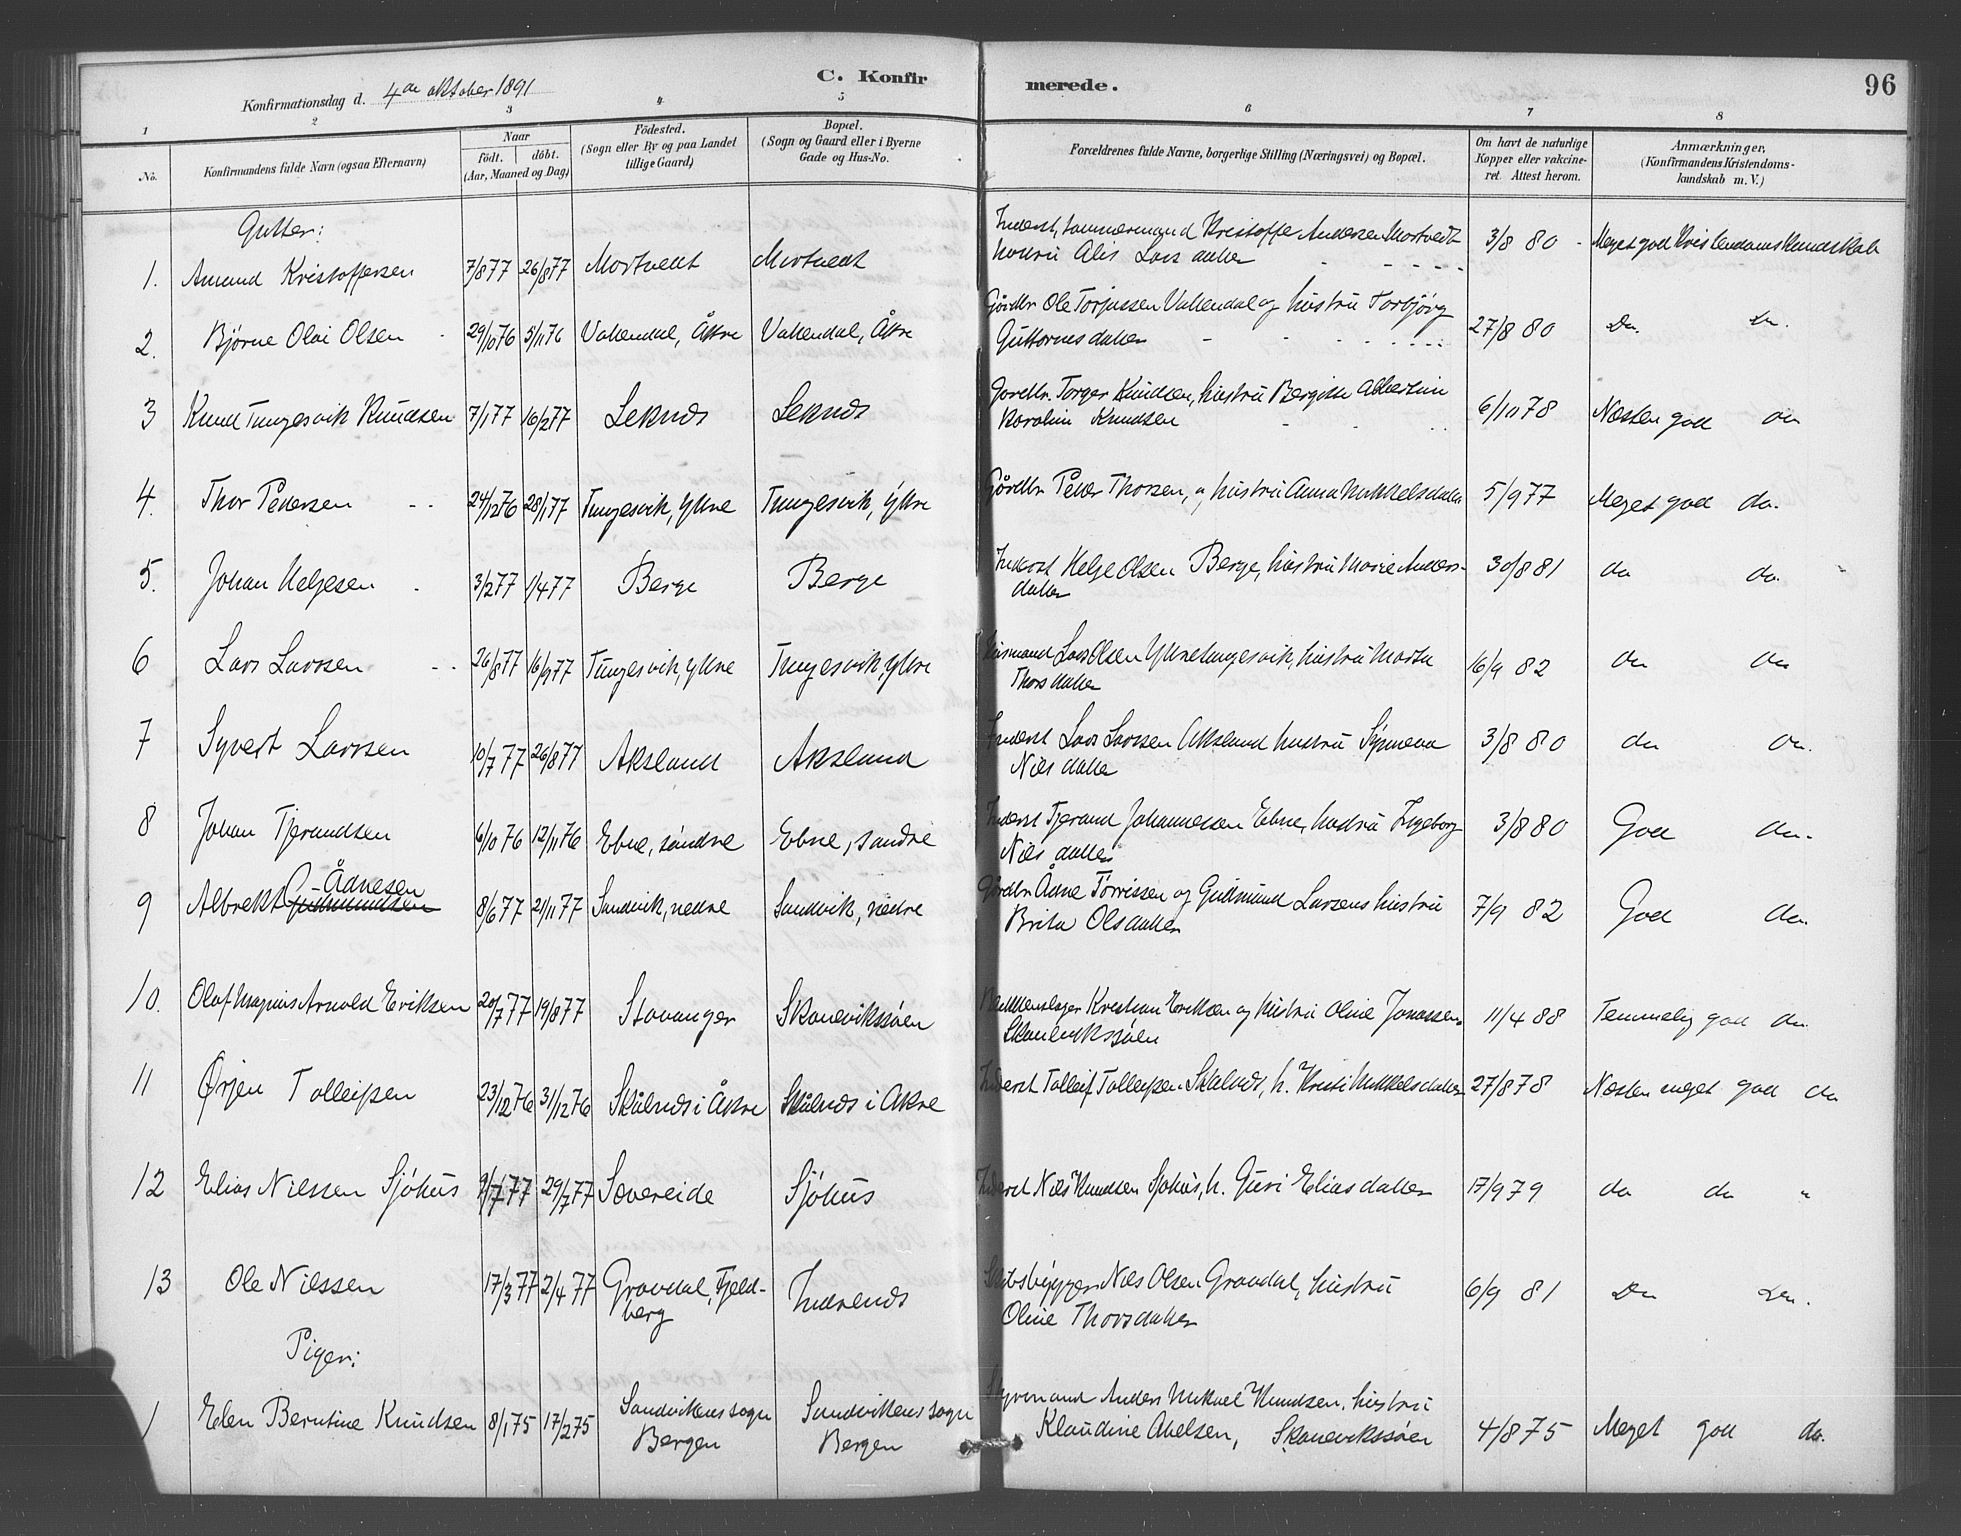 C. Konfirmerede.
96
Konfirmationsdag d. 4de oktober 1891
1 2 3 4 5 6 7 8
No.
Konfirmandens fulde Navn (ogsaa Efternavn)
Naar
födt. döbt.
(Aar, Maaned og Dag)
Födested.
(Sogn eller By og paa Landet
tillige Gaard)
Bopæl.
(Sogn og Gaard eller i Byerne
Gade og Hus-No.
Forældrenes fulde Navne, borgerlige Stilling (Næringsvei) og Bopæl.
Om havt de naturlige
Kopper eller vakcine-
ret. Attest herom.
Anmærkninger,
(Konfirmandens Kristendoms-
kundskab m. V.)
Gutter:
1. Amund Kristoffersen 7/8 77 26/8 77 Mortvedt Mortvedt Inderst, tømmermand Kristoffer Andersen Mortvedt 3/8 80 Meget god Kristendomskundskab
hustru Alis Larsdatter
2. Bjørne Olai Olsen 29/10 76 5/11 76 Vattendal, Åkre Vattendal, Åkre Gårdbr. Ole Torjussen Vattendal og hustru Torbjørg 27/8 80 Do. Do.
Guttormsdatter
3 Knud Tungesvik Knudsen 7/1 77 16/2 77 Leknes Leknes Gårdbr. Torger Knudsen, hustru Bergitte Albertine 6/11 78 Næsten god do
Karoline Knudsen
4. Thor Pedersen 24/12 76 28/1 77 Tungesvik, Ytre Tungesvik, Ytre Gårdbr. Peder Thorsen, og hustru Anna Mikkelsdatter 5/9 77 Meget god do.
5. Johan Helgesen 3/2 77 1/4 77 Berge Berge Inderst Helge Olsen Berge, hustru Marie Anders- 30/8 81 do do.
datter
6 Lars Larsen 26/8 77 16/9 77 Tungesvik, Ytre Tungesvik, Ytre Husmand Lars Olsen Ytre Tungesvik, hustru Marta 16/9 82 do do
Thorsdatter
7 Syvert Larsen 10/7 77 26/8 77 Aksland Aksland Inderst Lars Larsen Aksland hustru Synneva 3/8 80 do do.
Nilsdatter
8 Johan Tjerandsen 6/10 76 12/11 76 Ebne, søndre Ebne, søndre Inderst Tjerand Johannessen Ebne, hustru Ingeborg 3/8 80 God do.
Nilsdatter
Ådnesen
9 Albrekt Gudmundsen 8/6 77 21/11 77 Sandvik, nedre Sandvik, nedre Gårdbr. Ådne Torrissen og Gudmund Larsens hustru 7/9 82 God do.
Brita Olsdatter
10. Olaf Magnus Arnold Eriksen 20/7 77 19/8 77 Stavanger Skånevikssøen Kristian Eriksen og hustru Oline Jonassen 11/4 88 Temmelig god do.
Skånevikssjøen
11 Ørjen Tolleifsen 23/12 76 31/12 76 Skålnes i Åkre Skålnes i Åkre Inderst Tolleif Tolleifsen Skålnes, h. Kristi Mikkelsdatter 27/8 78 Næsten meget god do
12 Elias Nilssen Sjøhus 9/7 77 29/7 77 Sævereide Sjøhus Inderst Nils Knudsen Sjøhus, h. Guri Eliasdatter 17/9 79 do do "
13 Ole Nilssen 17/3 77 2/4 77 Gravdal, Fjeld- Indrenes Skibsbygger Nils Olsen Gravdal, hustru 6/9 81 Do Do.
berg Oline Thorsdatter
Piger:
1 Elen Berntine Knudsen 8/1 75 17/2 75 Sandvikens sogn Sandvikens sogn Styrmand Anders Mikael Knudsen, hustru 4/8 75 Meget god do.
Bergen Bergen Klaudine Abelsen, Skånevikssøen